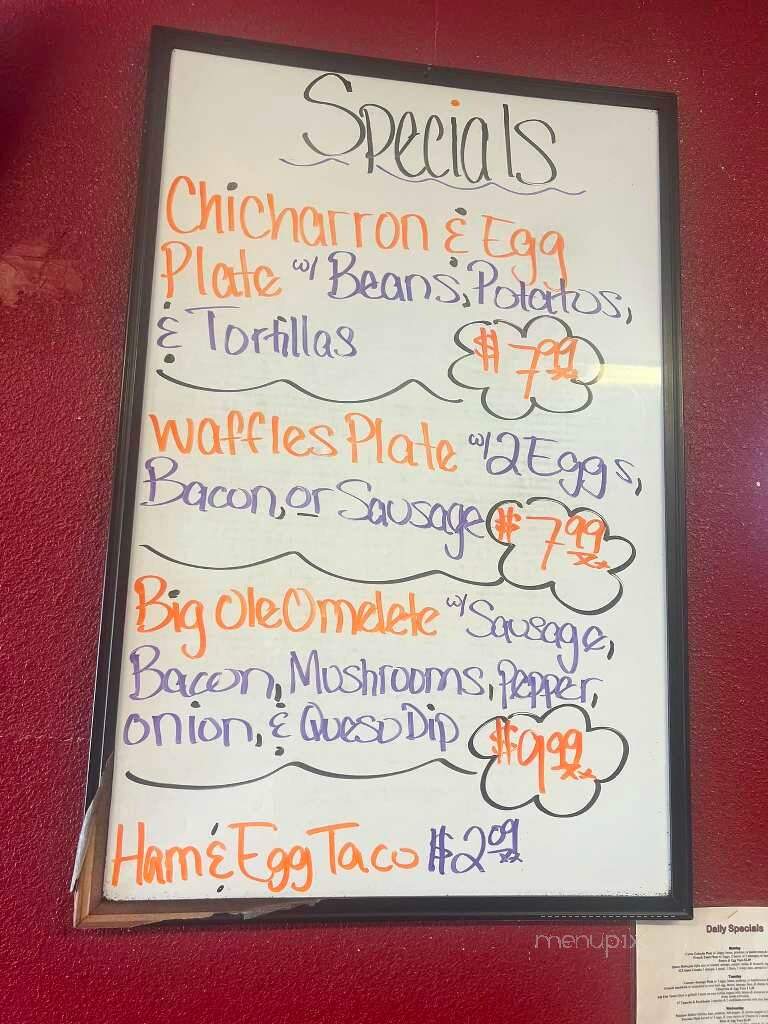 Specials
Chicharron & Egg
Plate w/ Beans, Potatos,
& Tortillas
$7.99
Waffles Plate w/ 2 Eggs,
Bacon, or Sausage $7.99
Big Ole Omelete w/ Sausage,
Bacon, Mushrooms, Pepper,
onion, & Queso Dip $9.99
Ham & Egg Taco $2.09
menupix
Daily Specials
Monday
Tuesday
Wednesday